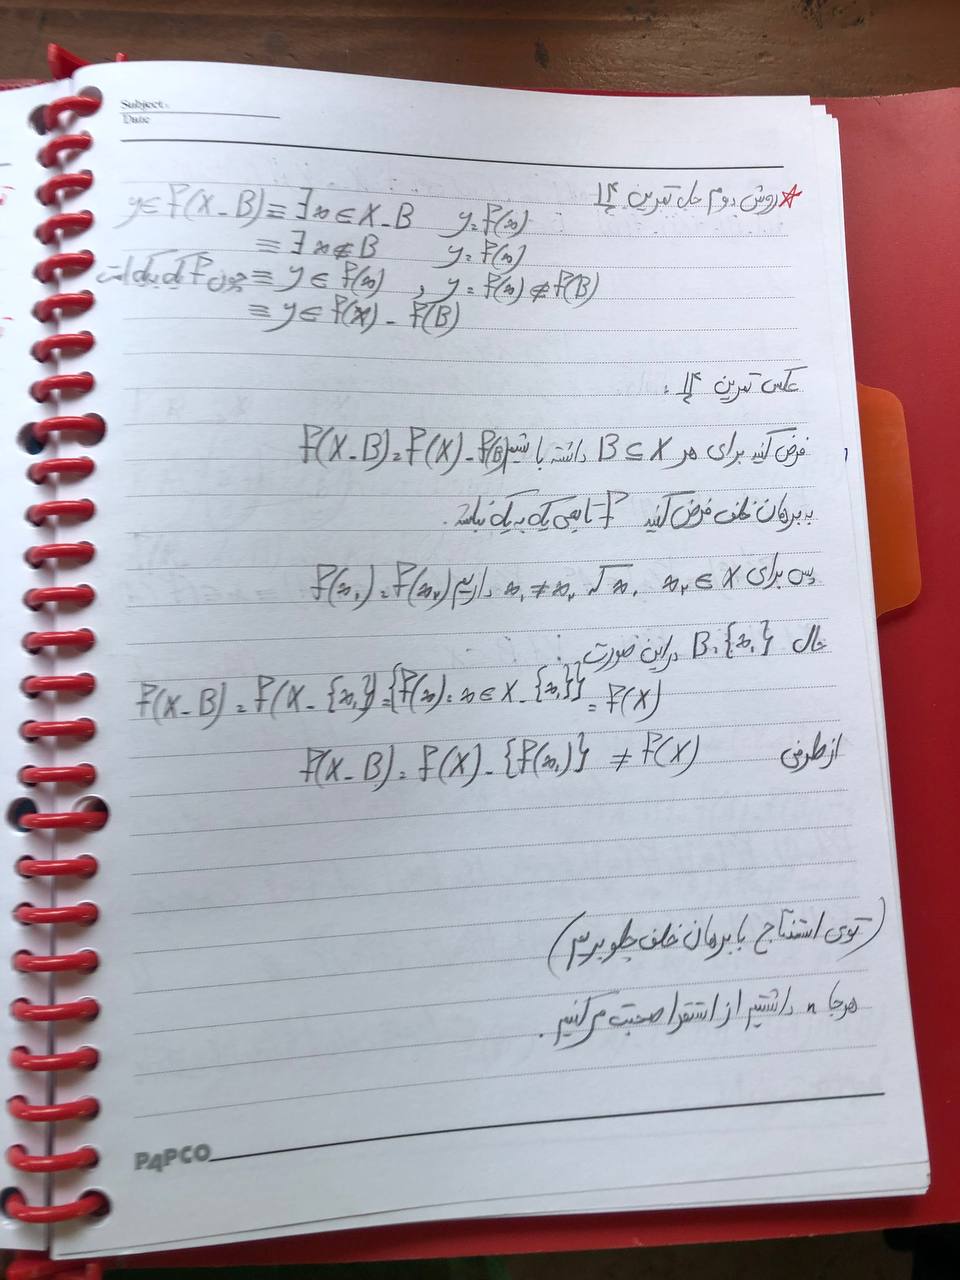 Subject:
Date
☆ روش دوم حل تمرین ۱۴
y ∈ f(X_B) ≡ ∃ x ∈ X_B y = f(x)
≡ ∃ x ∉ B y = f(x)
چون f یک به یک است ≡ y ∈ f(x) , y = f(x) ∉ f(B)
≡ y ∈ f(X) _ f(B)
عکس تمرین ۱۴ :
فرض کنید برای هر B ⊆ X داشته باشیم f(X_B) = f(X) _ f(B)
به برهان خلف فرض کنید f تابعی یک به یک نباشد.
پس برای x₁, x₂ ∈ X که x₁ ≠ x₂ داریم f(x₁) = f(x₂)
حال B = {x₁} در این صورت :
f(X_B) = f(X _ {x₁}) = {f(x) : x ∈ X _ {x₁}} = f(X)
از طرفی f(X_B) = f(X) _ {f(x₁)} ≠ f(X)
(توی استنتاج با برهان خلف جلو بریم)
هرجا n داشتیم از استقرا صحبت می کنیم.
PAPCO